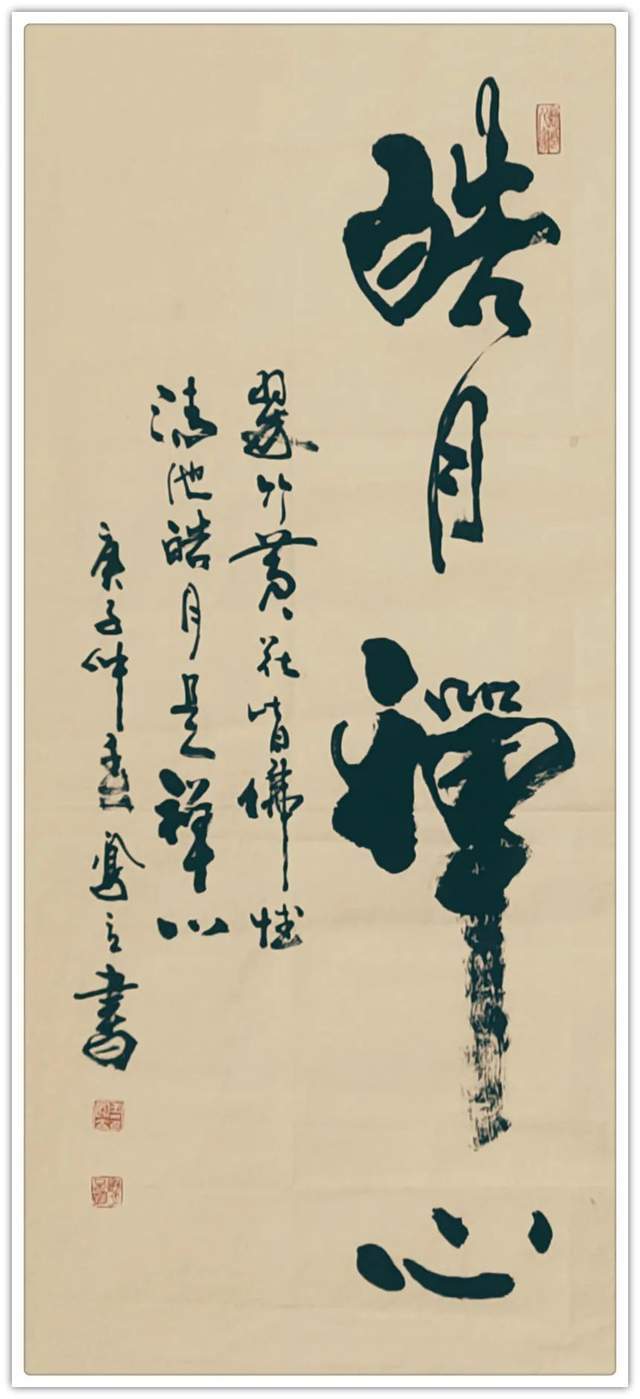 皓月禅心
翠竹黄花皆佛性
清池皓月是禅心
庚子仲春 立书